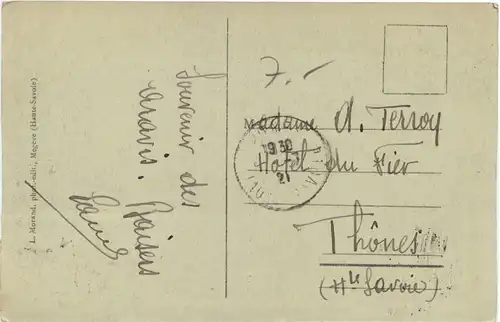 L. Morand, phot.-édit., Megève (Haute-Savoie)
Souvenir des
Aravis. Baisers
7.-
Madame A. Terroy
Hôtel du Fier
Thônes
(Hte Savoie)
19 30
21